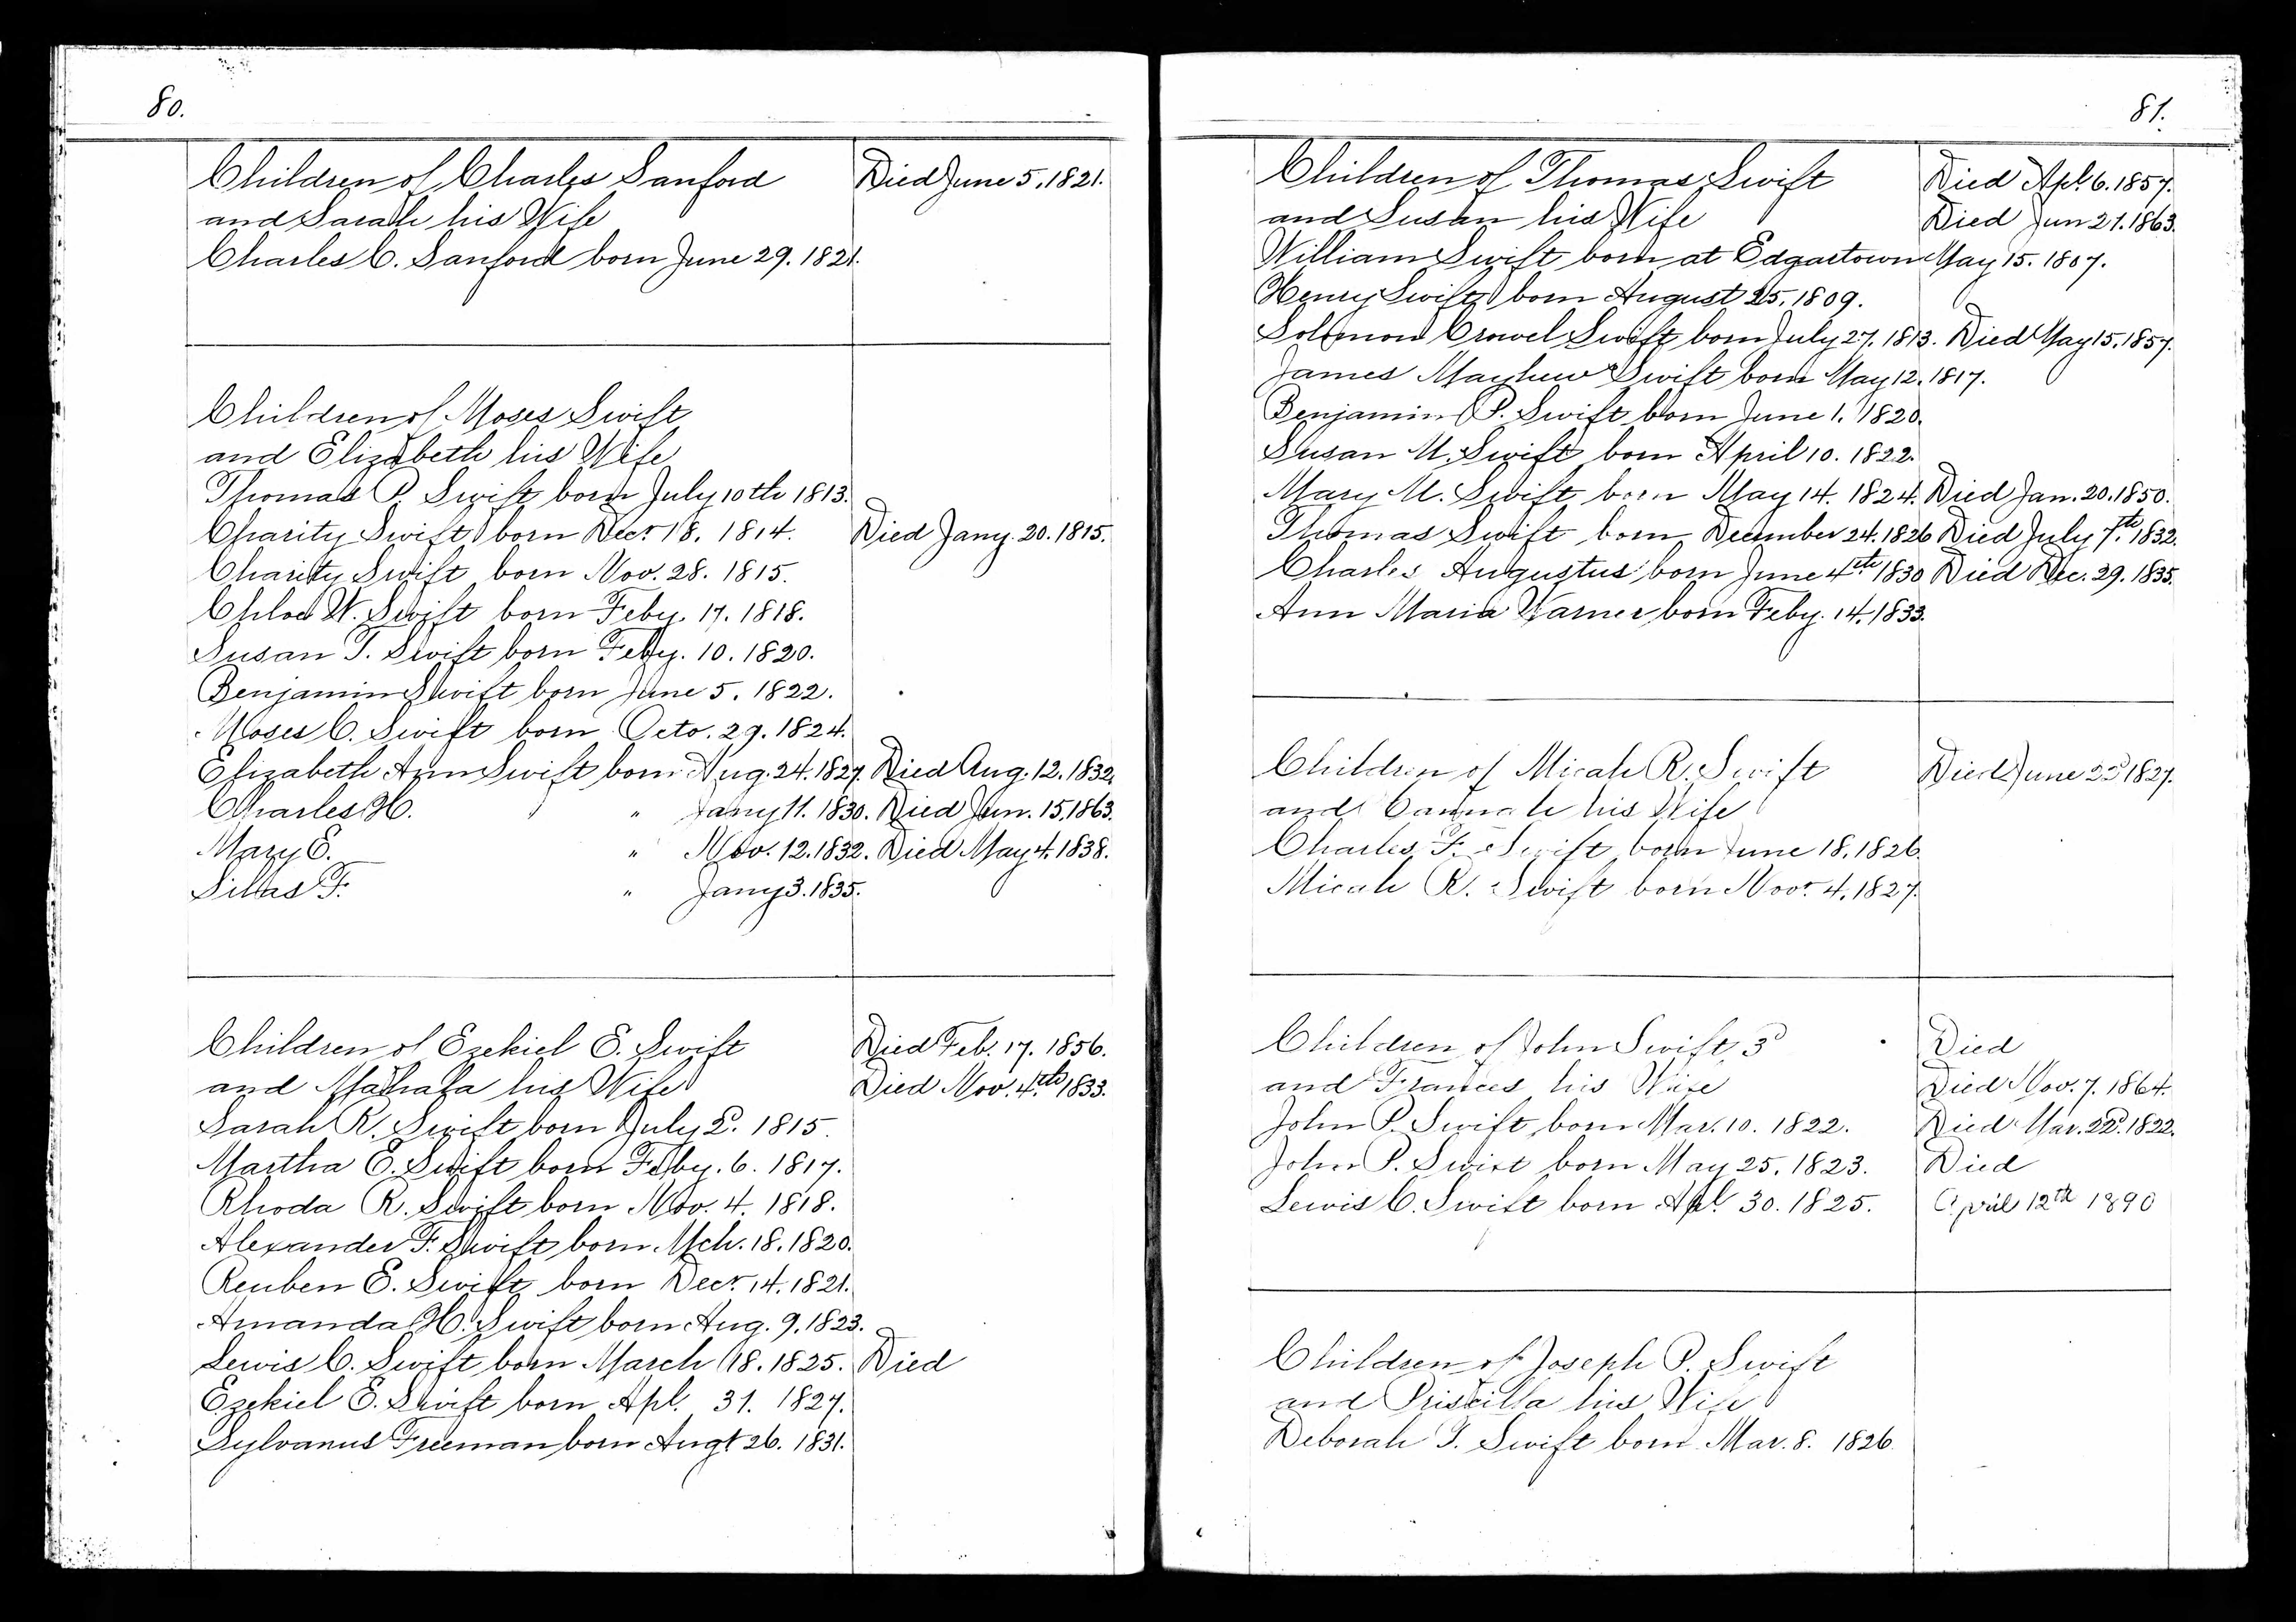 80.
Children of Charles Sanford Died June 5. 1821.
and Sarah his Wife
Charles C. Sanford born June 29. 1821.
Children of Moses Swift
and Elizabeth his Wife
Thomas P. Swift born July 10th 1813.
Charity Swift born Decr. 18. 1814. Died Jany. 20. 1815.
Charity Swift born Nov. 28. 1815.
Chloe W. Swift born Feby. 17. 1818.
Susan T. Swift born Feby. 10. 1820.
Benjamin Swift born June 5. 1822.
Moses C. Swift born Octo. 29. 1824.
Elizabeth Ann Swift born Aug. 24. 1827. Died Aug. 12. 1832.
Charles H. " Jany 11. 1830. Died Jan. 15, 1863.
Mary E. " Nov. 12. 1832. Died May 4. 1838.
Silas F. " Jany 3. 1835.
Children of Ezekiel E. Swift Died Feb. 17. 1856.
and Mahala his Wife Died Nov. 4th. 1833.
Sarah R. Swift born July 2d. 1815.
Martha E. Swift born Feby. 6. 1817.
Rhoda R. Swift born Nov. 4. 1818.
Alexander F. Swift born Mch. 18. 1820.
Reuben E. Swift born Decr. 14. 1821.
Amanda H. Swift born Aug. 9. 1823.
Lewis C. Swift born March 18. 1825. Died
Ezekiel E. Swift born Apl. 31. 1827.
Sylvanus Freeman born Augt 26. 1831.
81.
Children of Thomas Swift Died Apl. 6. 1857.
and Susan his Wife Died Jun 21. 1863.
William Swift born at Edgartown May 15. 1807.
Henry Swift born August 25. 1809.
Solomon Crowel Swift born July 27. 1813. Died May 15. 1857.
James Mayhew Swift born May 12. 1817.
Benjamin P. Swift born June 1. 1820.
Susan M. Swift born April 10. 1822.
Mary M. Swift born May 14. 1824. Died Jan. 20. 1850.
Thomas Swift born December 24. 1826 Died July 7th. 1832.
Charles Augustus born June 4th 1830 Died Dec. 29. 1835.
Ann Maria Warner born Feby. 14. 1833.
Children of Micah R. Swift Died June 22d 1827.
and his Wife
Charles F. Swift born June 18. 1826.
Micah R. Swift born Novr. 4. 1827.
Children of John Swift 3d Died
and Frances his Wife Died Nov. 7. 1864.
John P. Swift born Mar. 10. 1822. Died Mar. 22d. 1822.
John P. Swift born May 25. 1823. Died
Lewis C. Swift born Apl. 30. 1825. April 12th 1890
Children of Joseph P. Swift
and Priscilla his Wife
Deborah T. Swift born Mar. 8. 1826.